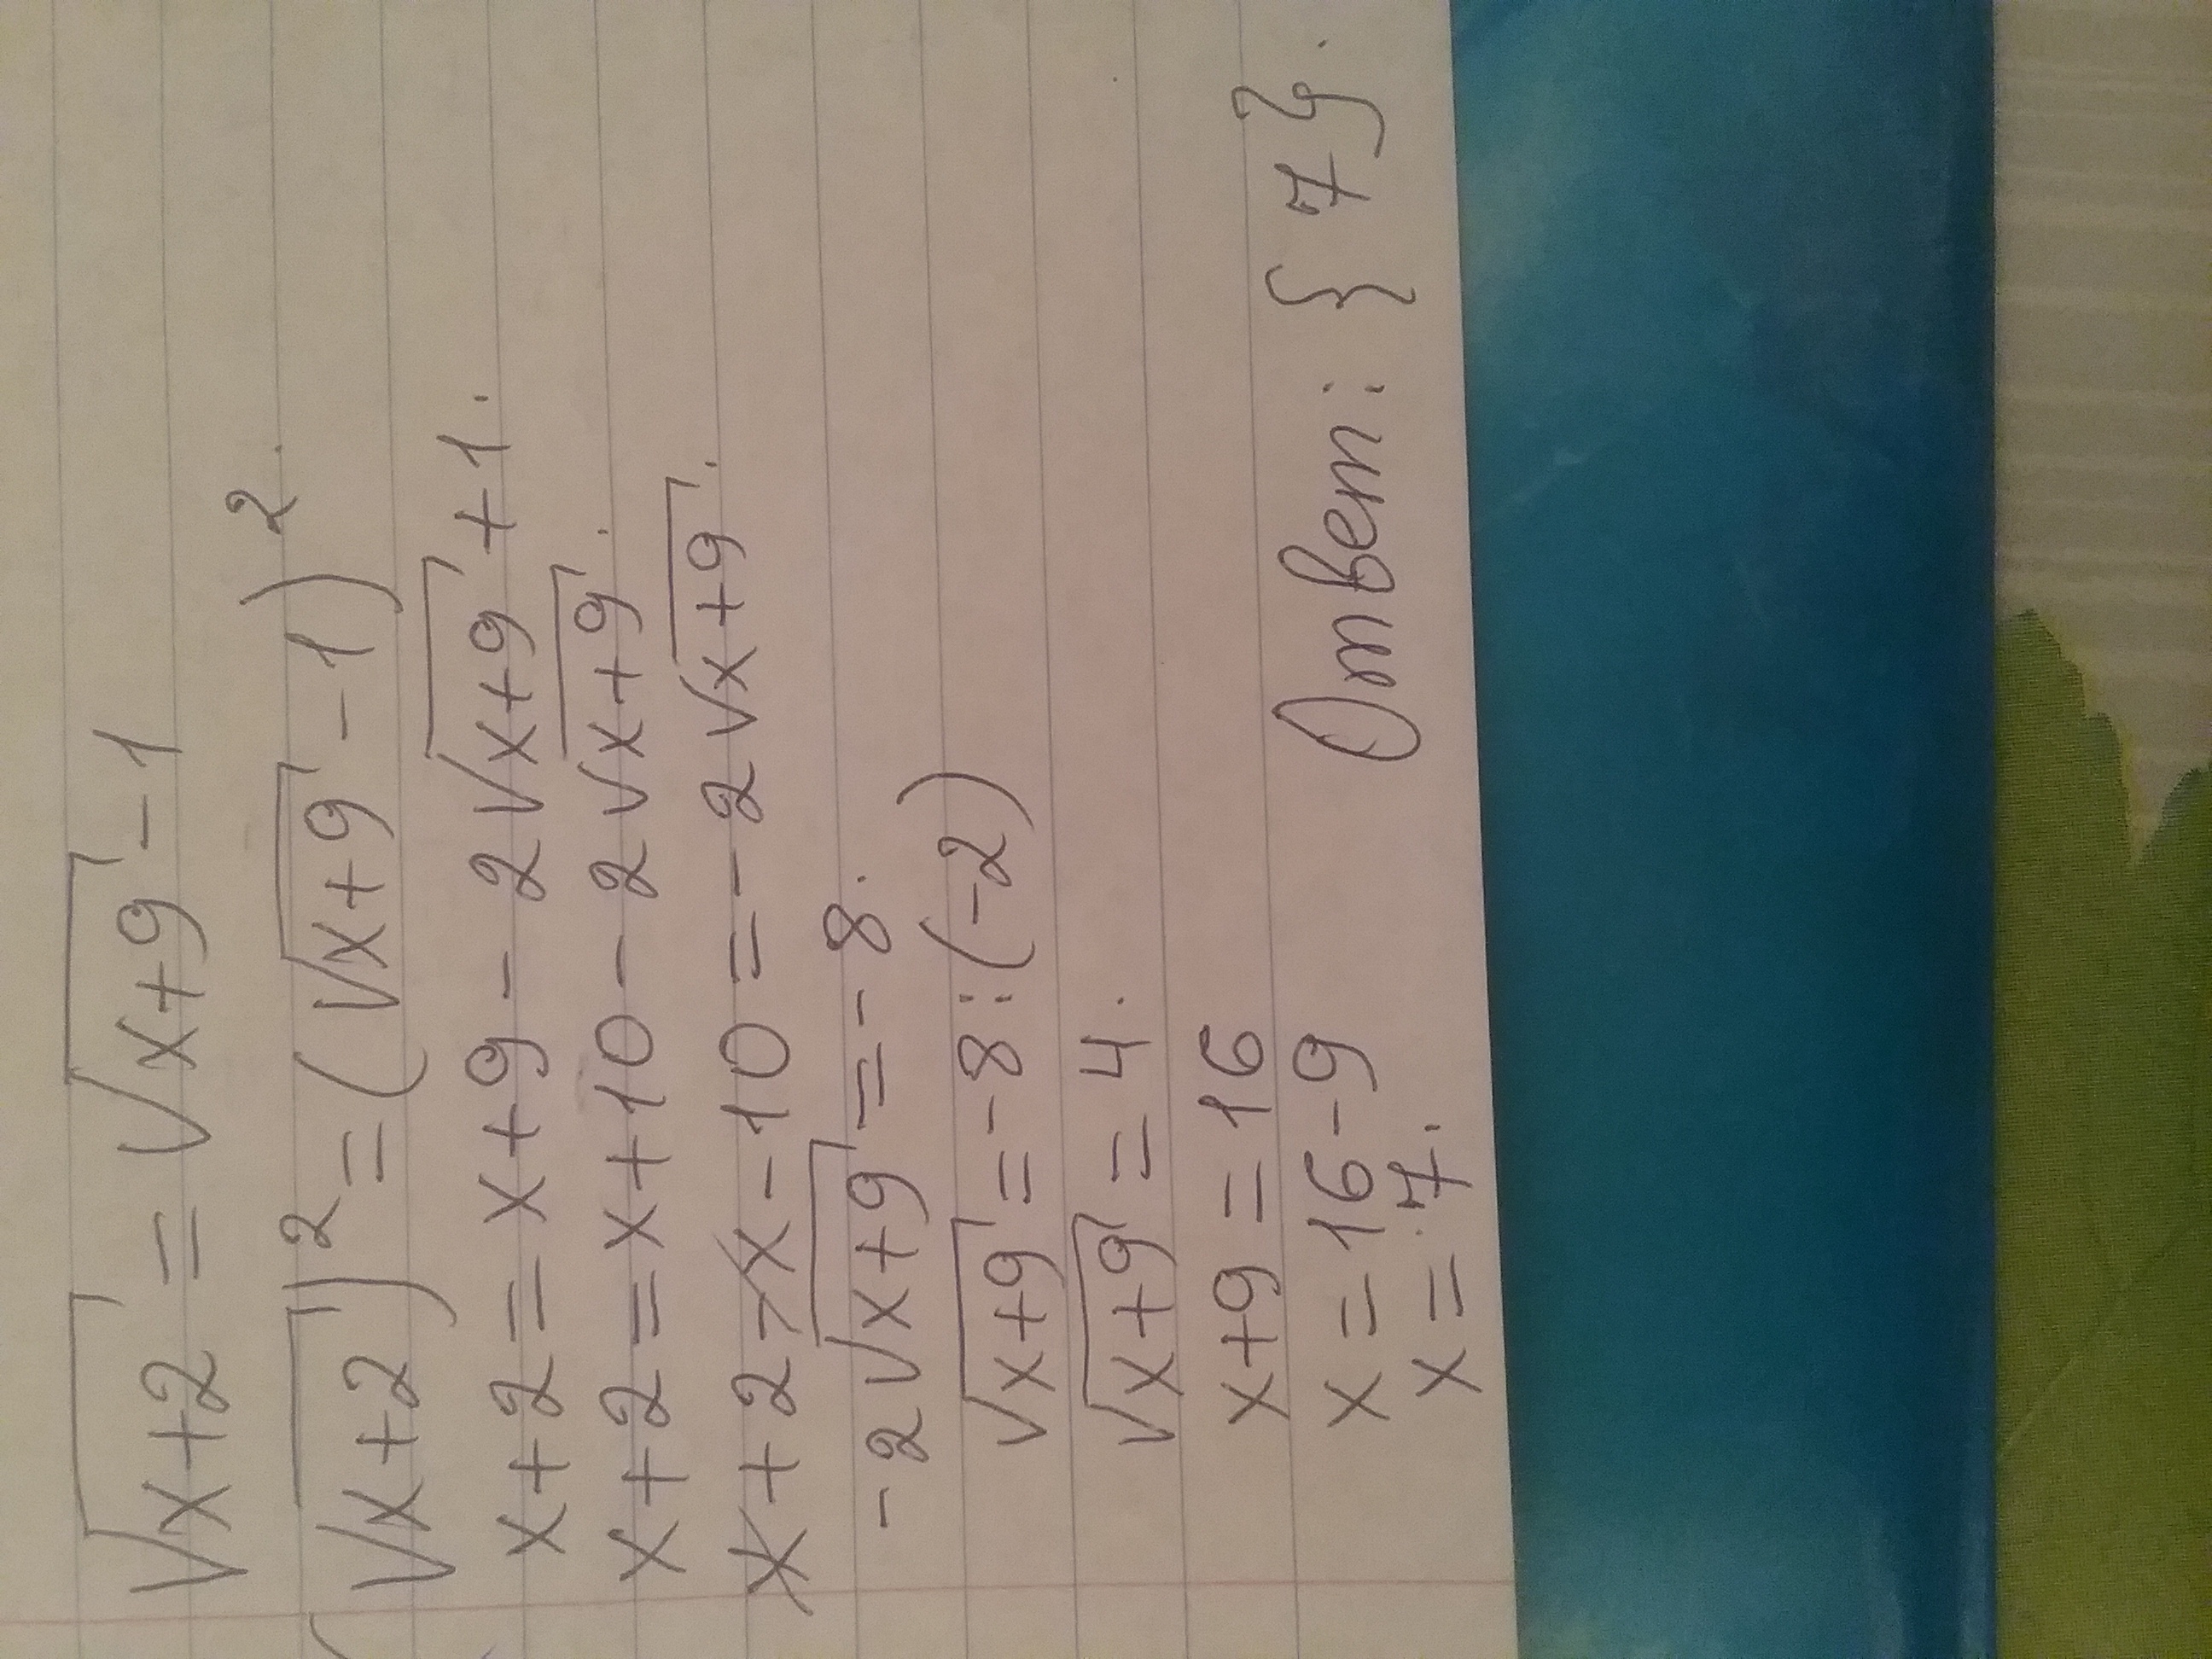 √x+2 = √x+9 - 1
(√x+2)² = (√x+9 - 1)².
x+2 = x+9 - 2√x+9 + 1.
x+2 = x+10 - 2√x+9.
x+2-x-10 = -2√x+9.
-2√x+9 = -8.
√x+9 = -8:(-2)
√x+9 = 4.
x+9 = 16
x = 16-9
x = 7.
Ответ: {7}.